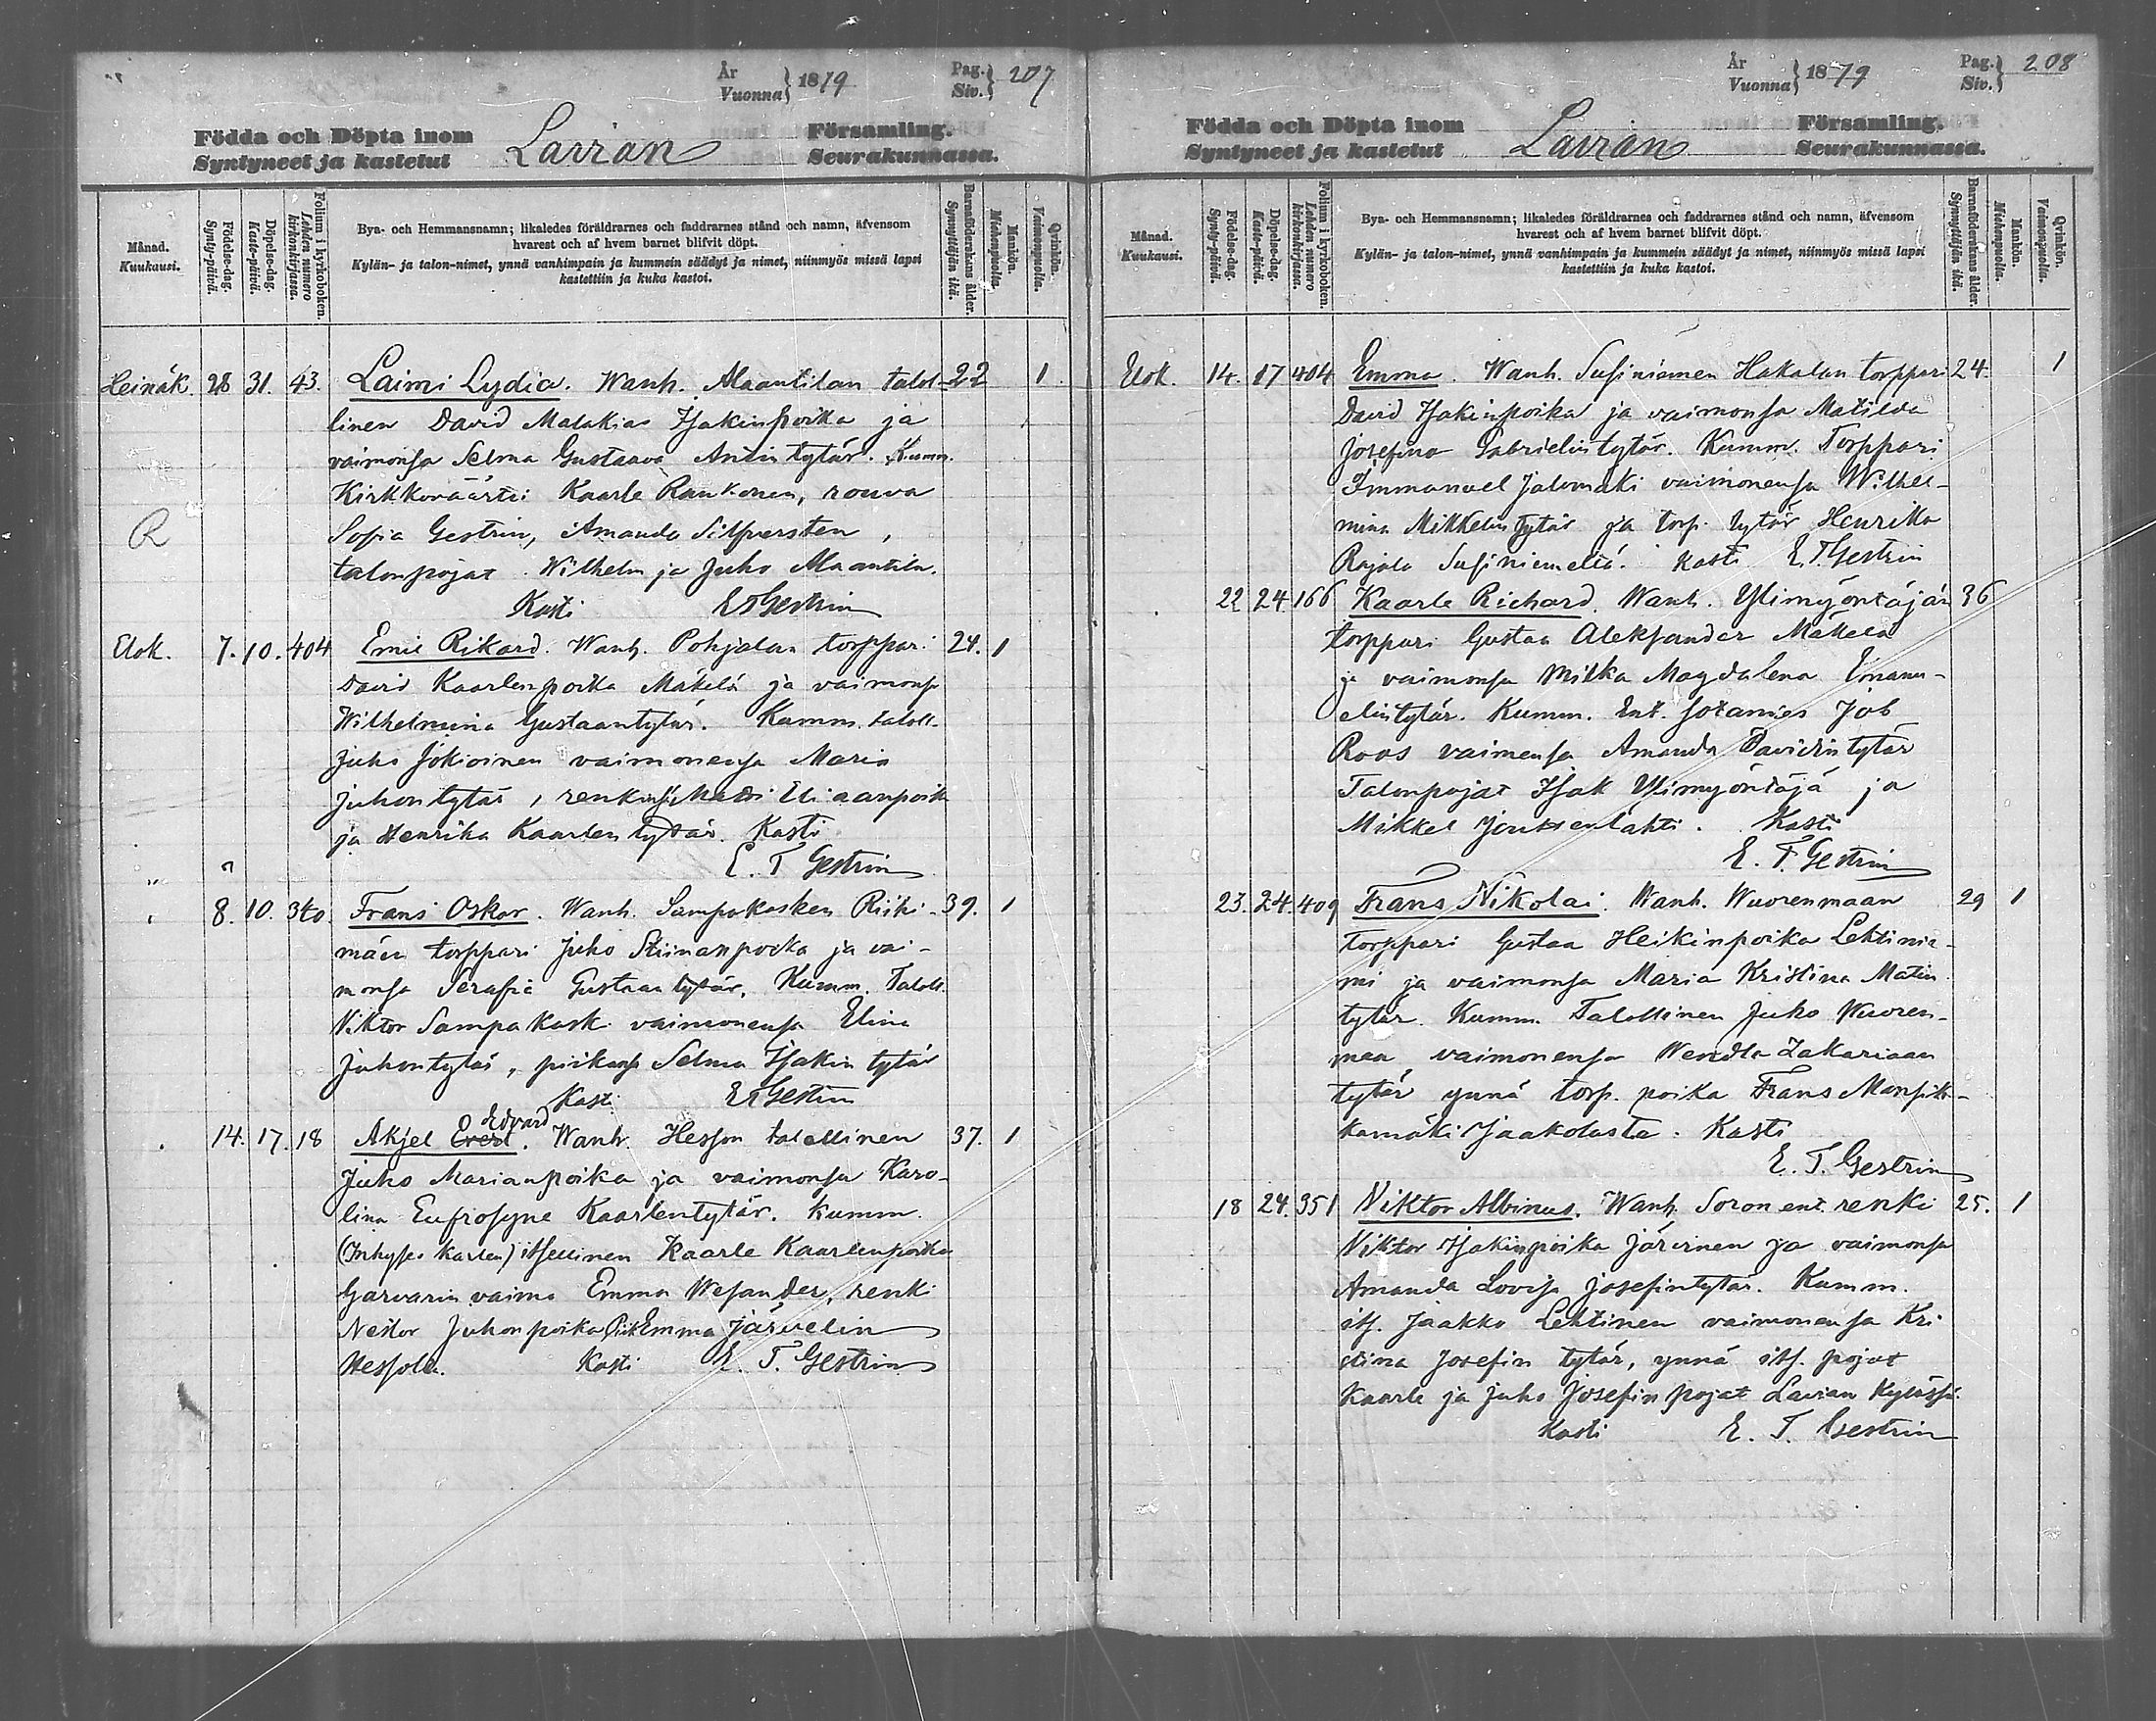 År
Vuonna } 1879
Pag.
Siv. } 207
Födda och Döpta inom
Syntyneet ja kastetut
Lavian
Församling.
Seurakunnassa.
Månad.
Kuukausi.
Födelse-dag.
Synty-päivä.
Döpelse-dag.
Kaste-päivä.
Folium i kyrkoboken.
Lehden numero kirkonkirjassa.
Bya- och Hemmansnamn; likaledes föräldrarnes och faddrarnes stånd och namn, äfvensom
hvarest och af hvem barnet blifvit döpt.
Kylän- ja talon-nimet, ynnä vanhimpain ja kummein säädyt ja nimet, niinmyös missä lapsi
kastettiin ja kuka kastoi.
Barnaföderskans ålder.
Synnyttäjän ikä.
Mankön.
Miehenpuolia.
Qvinkön.
Vaimonpuolia.
Heinäk. 28 31. 43. Laimi Lydia. Wanh. Alaantilan talol- 22 1.
linen David Malakias Isakinpoika ja
vaimonsa Selma Gustaava Antintytär. Kumm.
Kirkkoväärti Kaarle Raukonen, rouva
R Sofia Gestrin, Amanda Silfversten,
talonpojat Wilhelm ja Juho Alaantila.
Kasti ETGestrin
Elok. 7. 10. 404 Emil Rikard. Wanh. Pohjalan torppari 24. 1
David Kaarlenpoika Mäkelä ja vaimonsa
Wilhelmiina Gustaantytär. Kumm. taloll.
Juho Jokioinen vaimonensa Maria
Juhontytär, renki Matti Eliaanpoika
ja Henrika Kaarlentytär. Kasti
E. T Gestrin
8. 10. 340. Frans Oskar. Wanh. Sampakosken Riihi- 39. 1
mäen torppari Juho Stiinanpoika ja vai-
monsa Serafia Gustaantytär. Kumm. Taloll.
Viktor Sampakosk. vaimonensa Elina
Juhontytär, piikansa Selma Isakintytär
Kasti ETGestrin
Edvard
14. 17. 18 Aksel Evert. Wanh. Hesson talollinen 37. 1
Juho Marianpoika ja vaimonsa Karo-
lina Eufrosyne Kaarlentytär. Kumm.
(Inhyses Karlen) itsellinen Kaarle Kaarlenpoika
Garvarin vaimo Emma Wesander, renki
Nestor Juhonpoika Piik Emma Järvelin
Hessola. Kasti E. T. Gestrin
År
Vuonna } 1879
Pag.
Siv. } 208
Födda och Döpta inom
Syntyneet ja kastetut
Lavian
Församling.
Seurakunnassa.
Månad.
Kuukausi.
Födelse-dag.
Synty-päivä.
Döpelse-dag.
Kaste-päivä.
Folium i kyrkoboken.
Lehden numero kirkonkirjassa.
Bya- och Hemmansnamn; likaledes föräldrarnes och faddrarnes stånd och namn, äfvensom
hvarest och af hvem barnet blifvit döpt.
Kylän- ja talon-nimet, ynnä vanhimpain ja kummein säädyt ja nimet, niinmyös missä lapsi
kastettiin ja kuka kastoi.
Barnaföderskans ålder.
Synnyttäjän ikä.
Mankön.
Miehenpuolia.
Qvinkön.
Vaimonpuolia.
Elok. 14. 17 404 Emma. Wanh. Susiniemen Hakalan torppari 24. 1
David Isakinpoika ja vaimonsa Matilda
Josefina Gabrielintytär. Kumm. Torppari
Immanuel Jalomäki vaimonensa Wilhel-
mina Mikkelintytär ja torp. tytär Henrika
Rajala Susiniemeltä. Kasti E.TGestrin
22 24 166 Kaarle Richard. Wanh. Ylimyöntäjän 36
torppari Gustaa Aleksander Mäkelä
ja vaimonsa Milka Magdalena Emanu-
elintytär. Kumm. Ent. sotamies Job
Roos vaimensa Amanda Davidintytär
Talonpojat Isak Ylimyöntäjä ja
Mikkel Joutsenlahti. Kasti
E. T. Gestrin
23. 24. 409 Frans Nikolai. Wanh. Wuorenmaan 29 1
torppari Gustaa Heikinpoika Lehtinie-
mi ja vaimonsa Maria Kristina Matin
tytär. Kumm. Talollinen Juho Wuoren-
maa vaimonensa Wendla Zakariaan
tytär ynnä torp. poika Frans Mansik-
kamäki Jaakolasta. Kasti
E. T. Gestrin
18 24. 351 Viktor Albinus. Wanh. Soron ent. renki 25. 1
Viktor Isakinpoika Järvinen ja vaimonsa
Amanda Lovisa Josefintytär. Kumm.
its. Jaakko Lehtinen vaimonensa Kri
stina Josefin tytär, ynnä its. pojat
Kaarle ja Juho Josefin pojat Lavian kylässä.
Kasti E. T. Gestrin